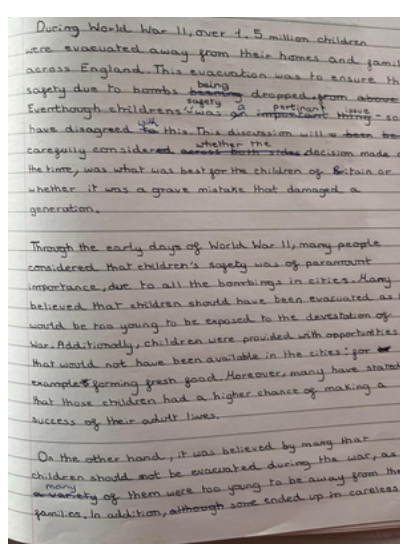 During World War II, over 1.5 million children
were evacuated away from their homes and famil
across England. This evacuation was to ensure th
safety due to bombs being dropped from above
Eventhough childrens safety was a pertinant issue - so
have disagreed with this. This discussion will
carefully consider whether the decision made a
the time, was what was best for the children of Britain or
whether it was a grave mistake that damaged a
generation.
Through the early days of World War II, many people
considered that children's safety was of paramount
importance, due to all the bombings in cities. Many
believed that children should have been evacuated as
would be too young to be exposed to the devestation of
War. Additionally, children were provided with opportunities
that would not have been available in the cities: for
example forming fresh food. Moreover, many have stated
that those children had a higher chance of making a
success of their adult lives.
On the other hand, it was believed by many that
children should not be evacuated during the war, as
many of them were too young to be away from the
families. In addition, some ended up in careless